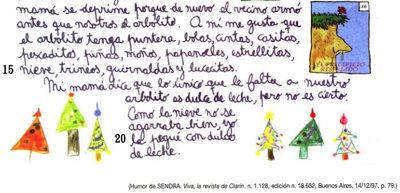 mamá se deprime porque de nuevo el vecino armó
antes que nosotros el arbolito. A mí me gusta que
el arbolito tenga puntera, bolas, cintas, casitas,
pescaditos, piñas, moños, papanoeles, estrellitas,
15 nieve, trineos, guirnaldas y lucecitas.
Mi mamá dice que lo único que le falta a nuestro
arbolito es dulce de leche, pero no es cierto.
Como la nieve no se
agarraba bien, yo
20 la pegué con dulce
de leche.
(Humor de SENDRA. Viva, la revista de Clarín. n. 1.128, edición n. 18.632, Buenos Aires, 14/12/97, p. 79.)